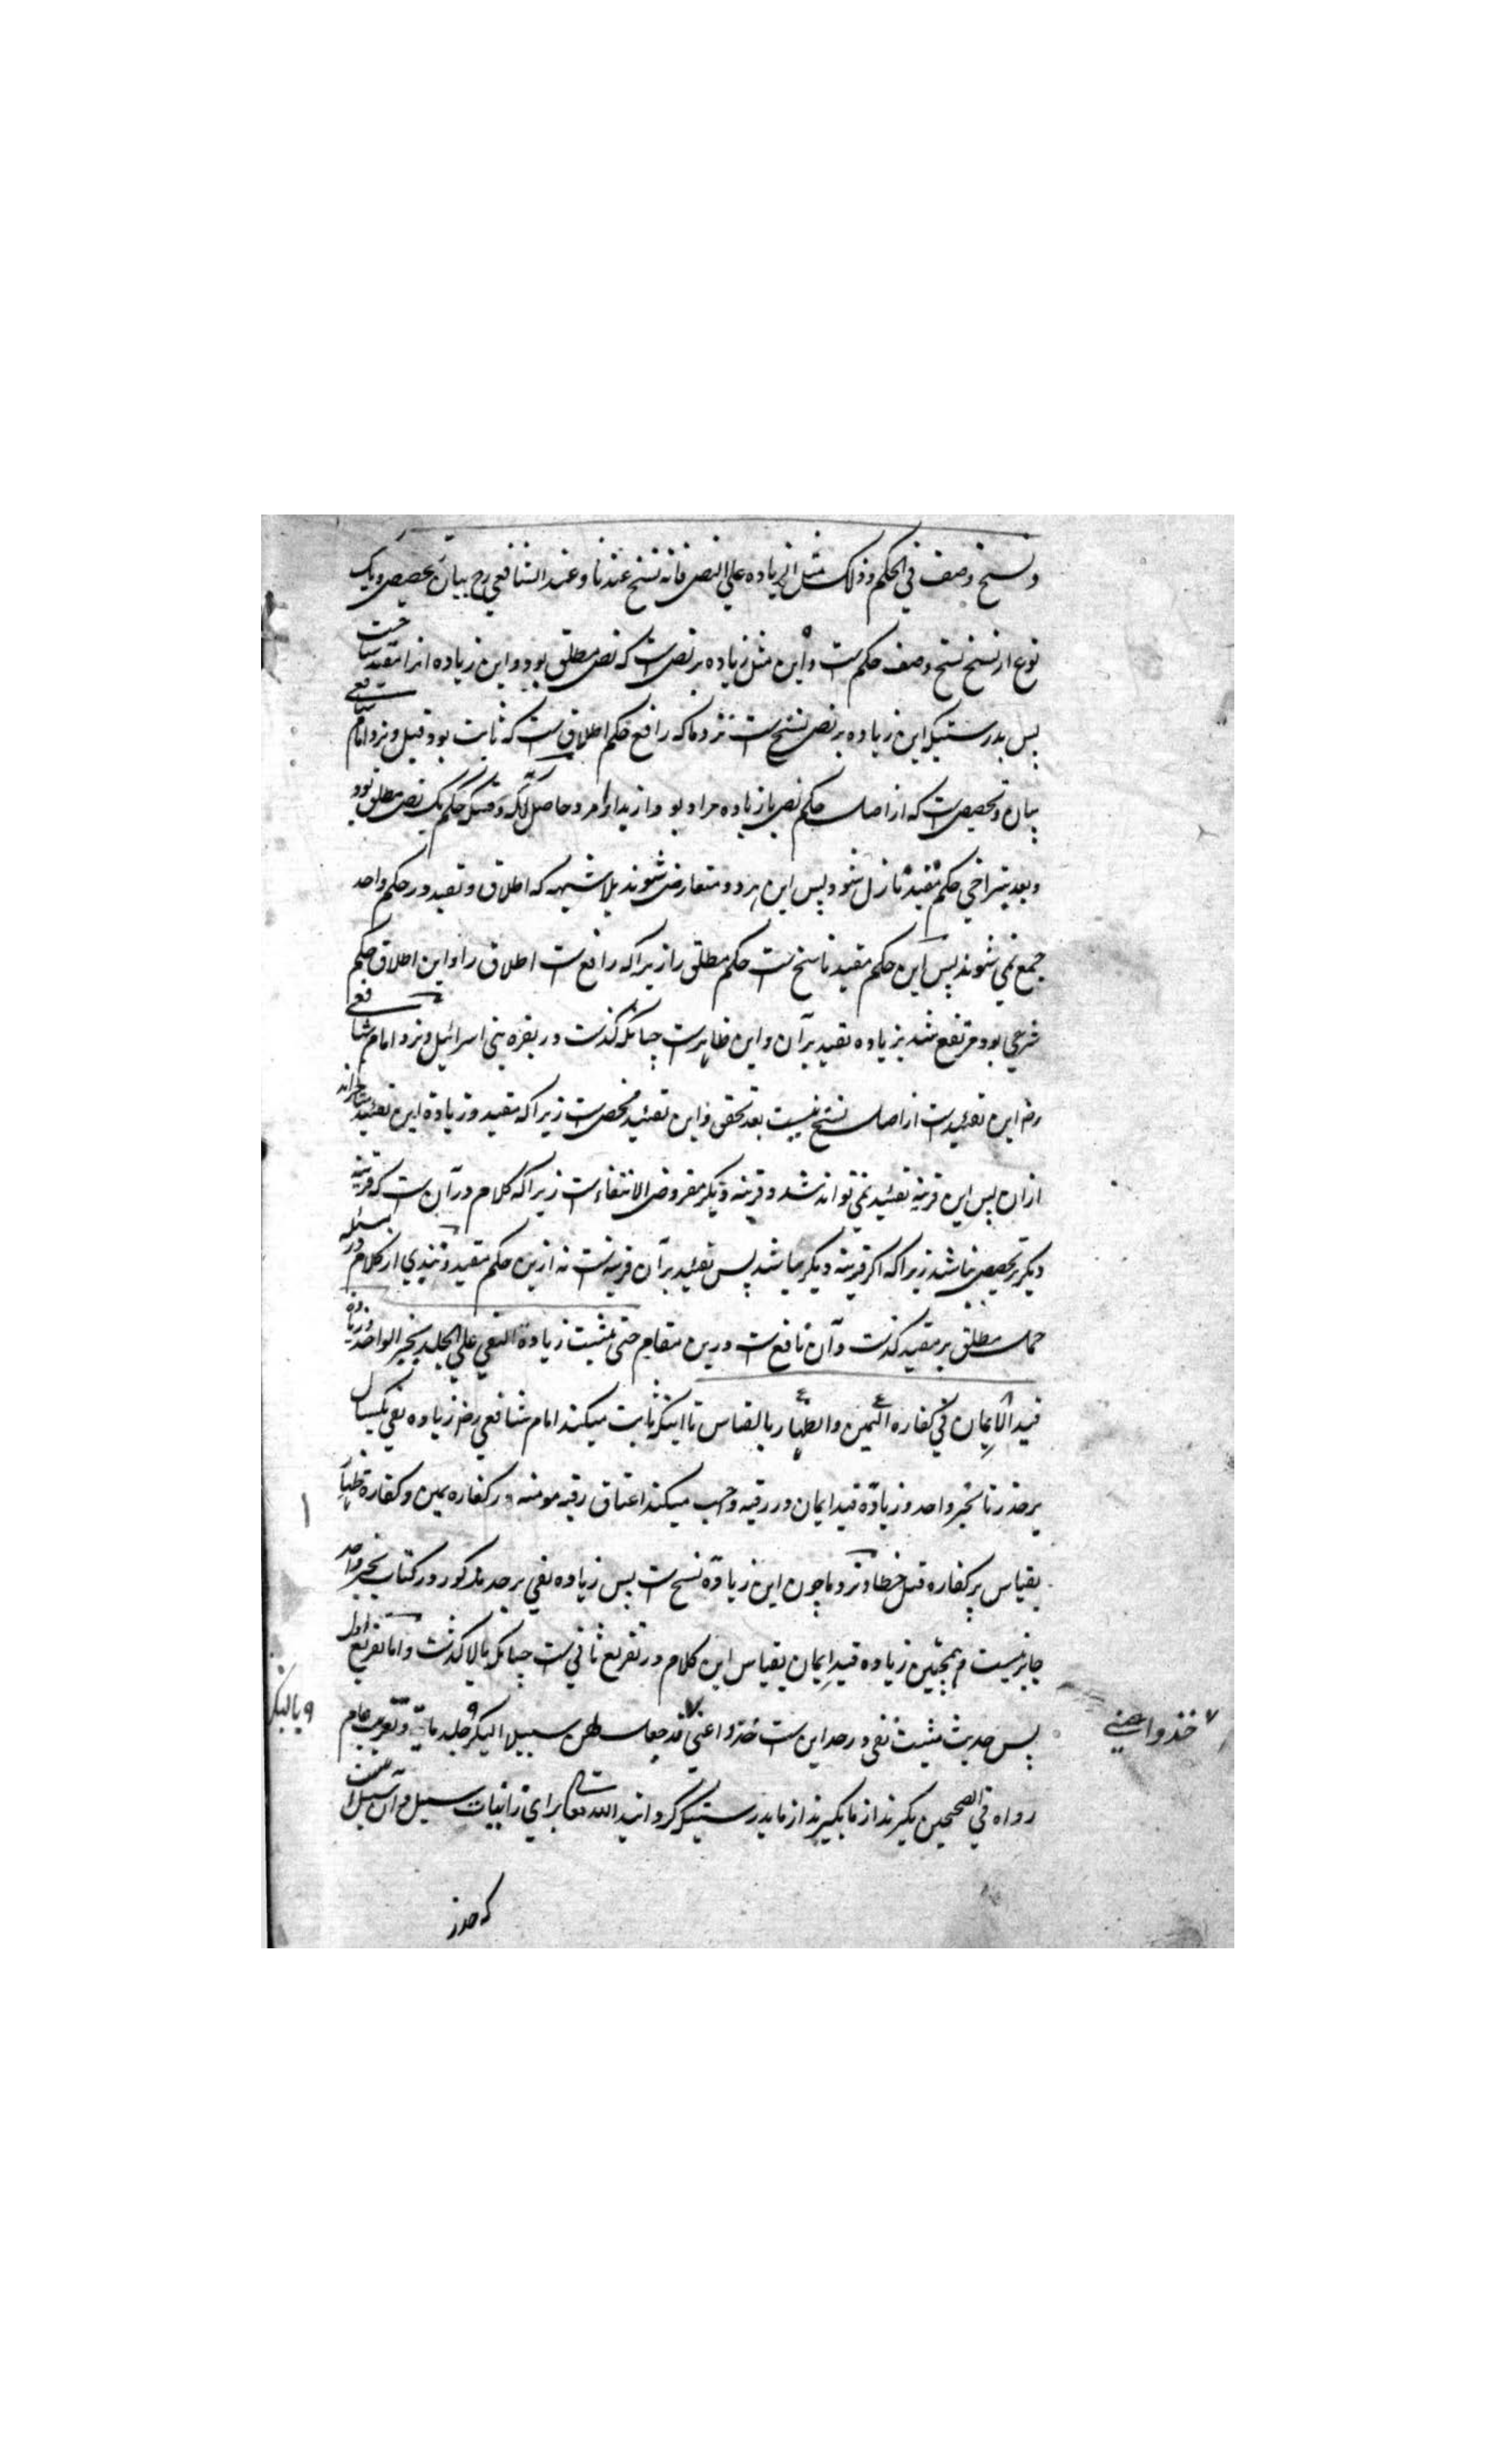 ونسخ وصف فی الحکم وذلک مثل الزیاده علی النص فانه نسخ عندنا وعند الشافعی رح بیان تخصیص ویک
نوع از نسخ نسخ وصف حکم ست واین مثل زیاده بر نص ست که نص مطلق بود واین زیاده انرا مقید ساخت
پس بدرستیکه این زیاده بر نص نسخ ست نزد ما که رافع حکم اطلاق ست که ثابت بود قبل ونزد امام شافعی
بیان وتخصیص ست که از اصل حکم نص با زیاده مراد بود حاصل آنکه وقتیکه حکم یک نص مطلق بود
وبعد بتراخی حکم مقید نازل شود پس این هر دو متعارض شوند بلا شبهه که اطلاق وتقید در حکم واحد
جمع نمی شوند پس این حکم مقید ناسخ ست حکم مطلق را زیرا که رافع ست اطلاق را واین اطلاق حکم
شرعی بود مرتفع شد بزیاده تقید بر آن واین ظاهرست چنانکه گذشت در بقره بنی اسرائیل ونزد امام شافعی
رض این تقیدست از اصل نسخ نیست بعد تحقق واین تقئید مخصص ست زیرا که مقید وزیادة این تقئید متاخراند
ازان پس این قرینه تقئید نمی تواند شد وقرینه دیگر مفروض الانتفاء ست زیرا که کلام در آن ست که قرینه
دیگر بر تخصیص نباشد زیرا که اگر قرینه دیگر میباشد پس تقئید بر آن قرینه ست نه ازین حکم مقید وتبذی از کلام در مسئله
حمل مطلق بر مقید گذشت وآن نافع ست درین مقام حتی یثبت زیادة النفی علی الجلد بخبر الواحد وزیادة
قید الایمان فی کفاره الیمین والظهار بالقیاس تا اینکه ثابت میکند امام شافعی رض زیاده نفی یکسال
بر حد زنا بخبر واحد وزیادة قید ایمان در رقبه واجب میکند اعتاق رقبه مومنه در کفاره یمین وکفارة ظهار
بقیاس بر کفاره قتل خطا ونزد ما چون این زیادة نسخ ست پس زیاده نفی بر حد مذکور در کتاب بخبر واحد
جایز نیست وهمچنین زیاده قید ایمان بقیاس این کلام در تفریع ثانی ست چنانکه بالا گذشت واما تفریع اول
پس حدیث مثبت نفی در حد این ست خذوا عنی قد جعل لهن سبیلا البکر جلد مایة وتغریب عام
رواه فی الصحیحین بگیرند از ما بگیرند از ما بدرستیکه گردانید الله تعا برای زانیات سبیل وآن سبیل
که حد ز
خذوا عنی
وبالبکر